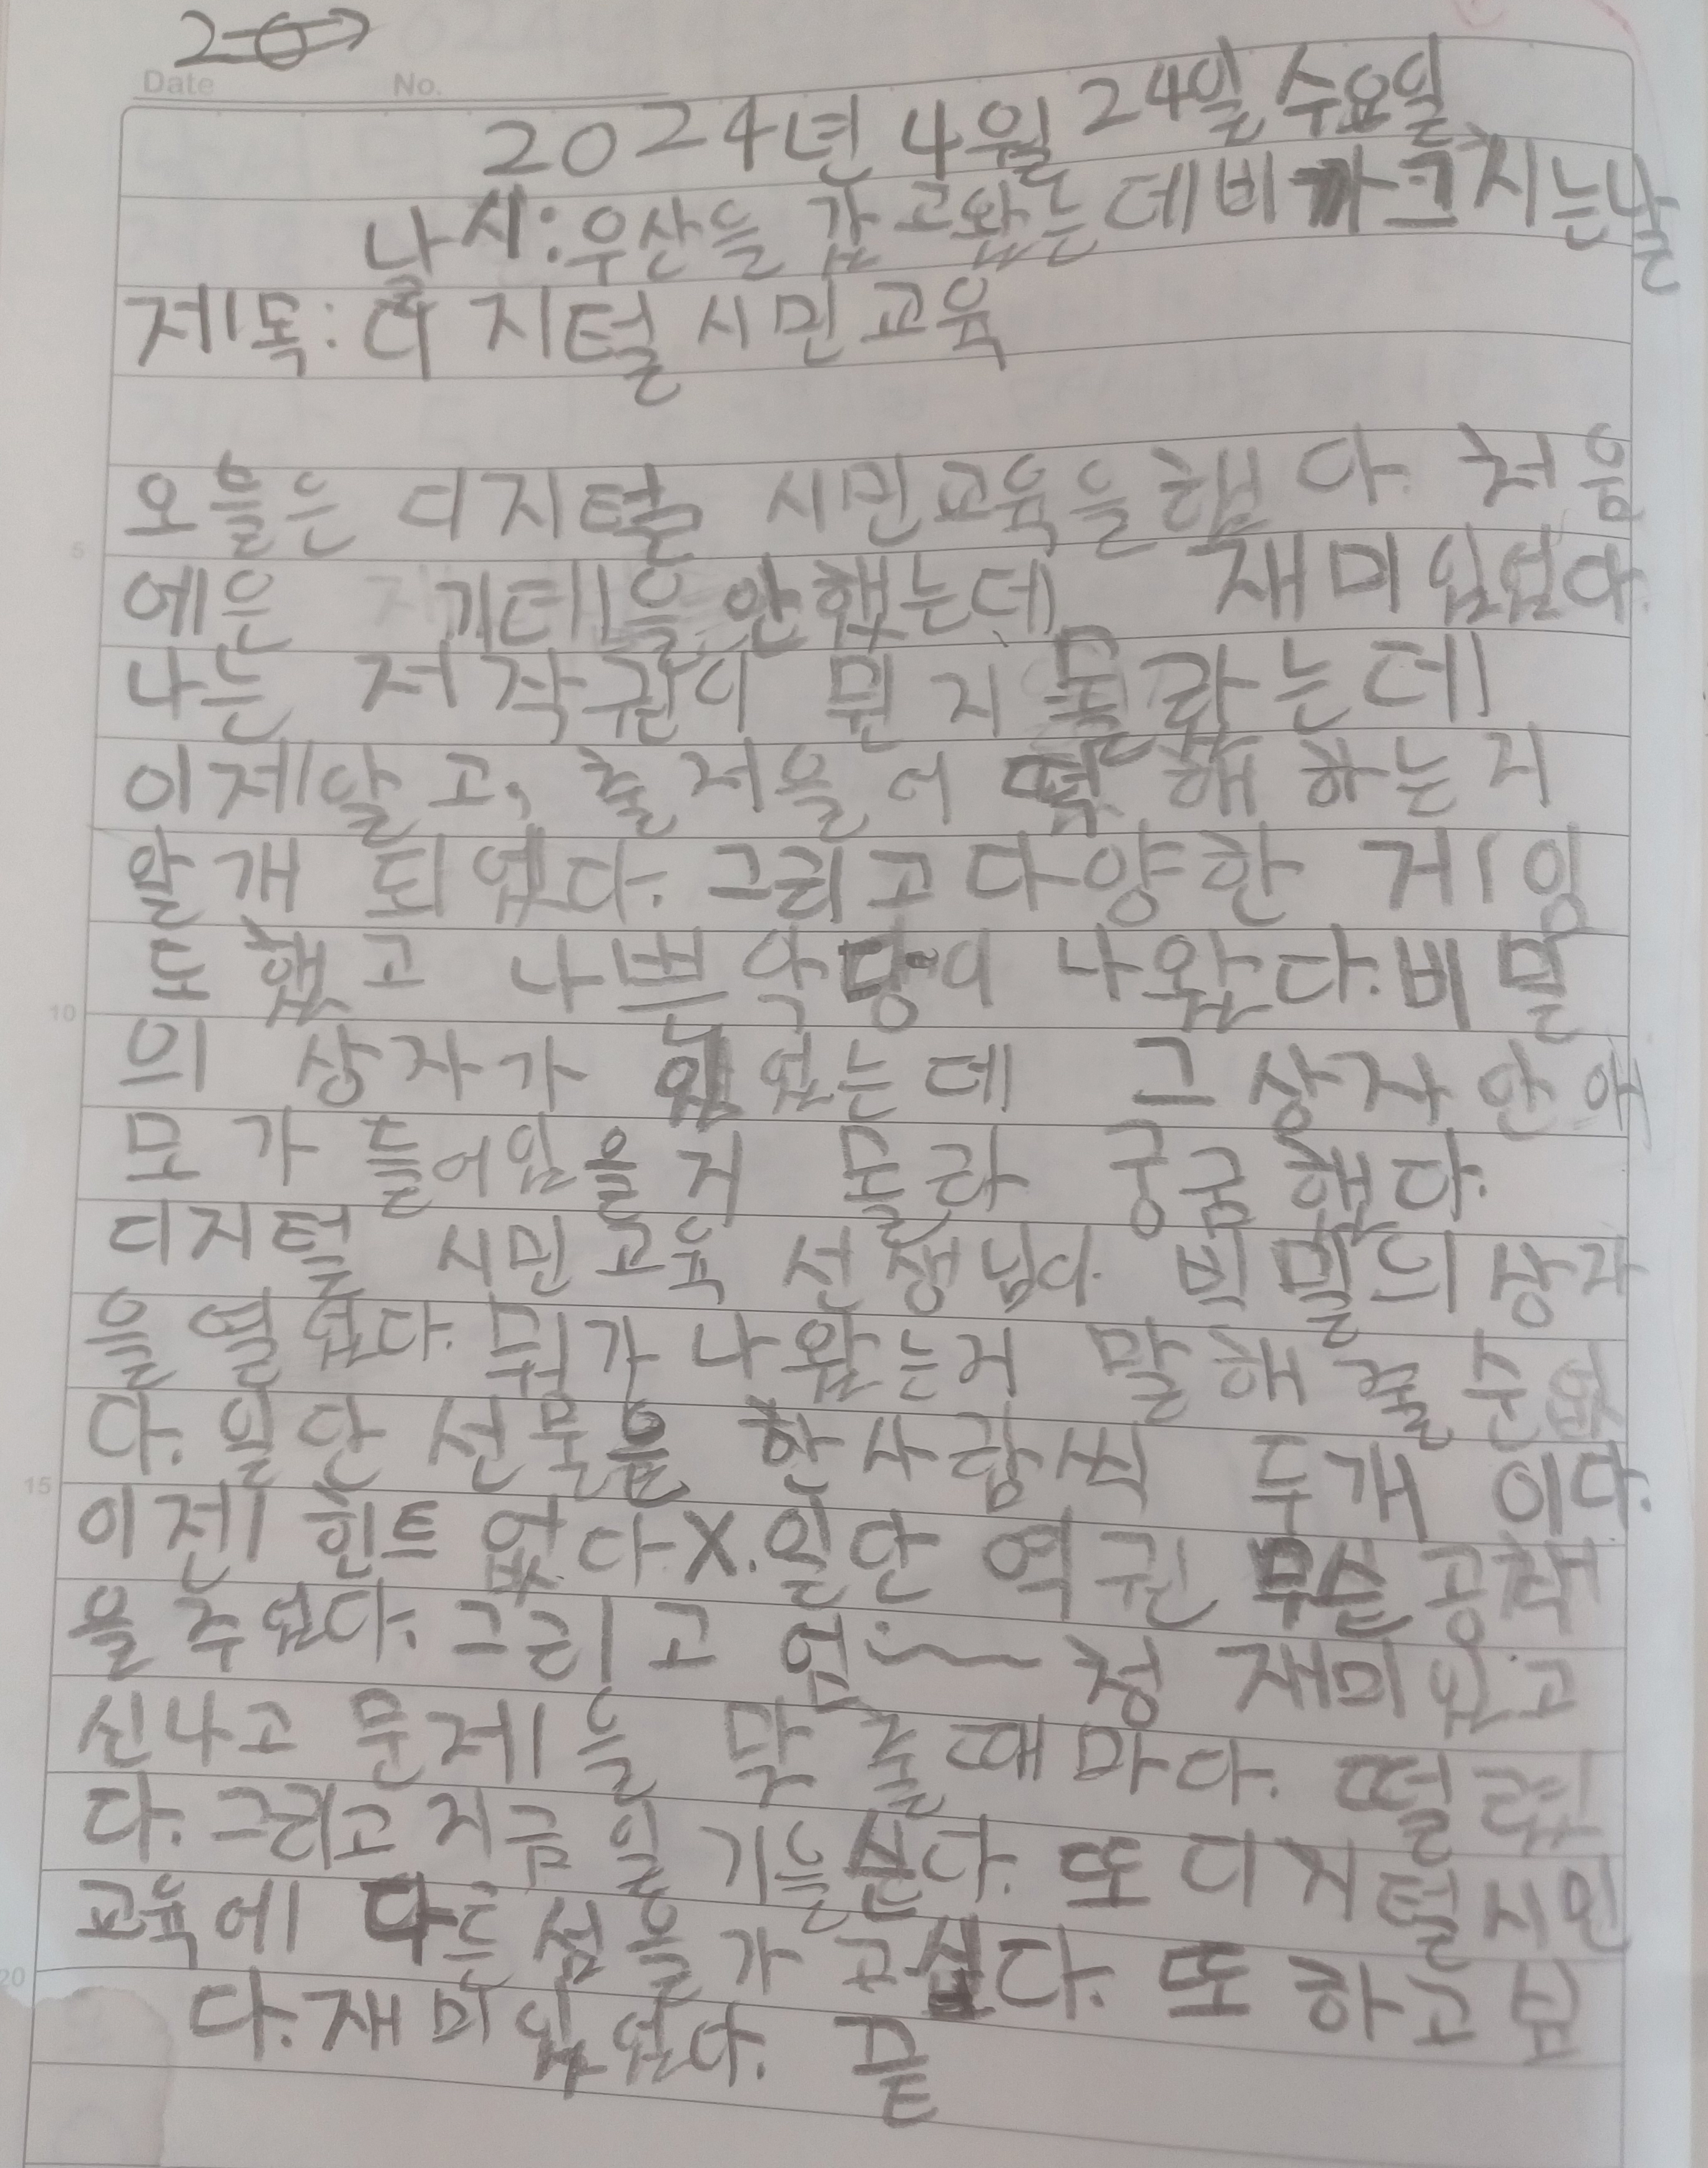 Date No.
2024년 4월 24일 수요일
날씨: 우산을 갖고왔는데 비가 그치는 날
제목: 디지털 시민 교육
오늘은 디지털 시민교육을 했다. 처음
에은 기데을 안했는데 재미있었다.
나는 저작권이 뭔지 몰라는데
이제 알고, 출저을 어떻해 하는지
알개 되었다. 그리고 다양한 게임
도 했고 나쁜 악당이 나왔다. 비밀
의 상자가 있었는데 그 상자 안애
모가 들어있을지 몰라 궁굼했다.
디지털 시민 교육 선생님다. 비밀의 상자
을 열었다. 뭐가 나왔는지 말해 줄 순 없
다. 일단 선물을 한 사람씩 두개 이다.
이젠 힌트 없다 X. 일단 역권 무슨 공책
을 주었다. 그리고 엄~ 청 재미있고
신나고 문제을 맞출 때 마다. 떨렸
다. 그리고 지금 일기를 쓴다. 또 디지털 시민
교육에 다른 섬을 가고 싶다. 또 하고 싶
다. 재미있었다. 끝
5
10
15
20